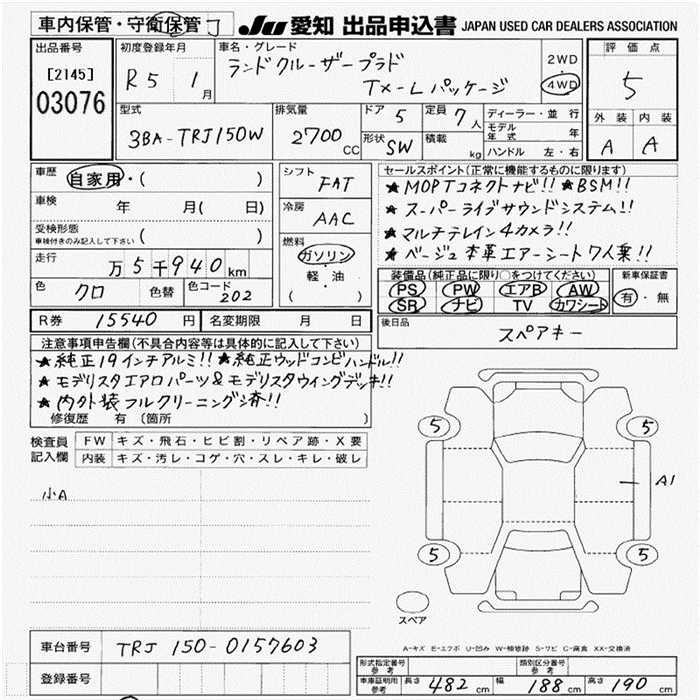 車内保管・守衛保管
JU 愛知 出品申込書 JAPAN USED CAR DEALERS ASSOCIATION
出品番号
[2145]
03076
初度登録年月
R5 1月
車名・グレード
ランドクルーザープラド
TX-L パッケージ
2WD
・
4WD
評価点
5
外装 内装
A A
型式
3BA-TRJ150W
排気量
2700 CC
ドア 5
形状 SW
定員 7人
積載 kg
ディーラー・並行
モデル年式 年
ハンドル 左・右
車歴
自家用・( )
車検 年 月( 日)
受検形態
車検付きのみ記入して下さい ( )
走行
万5千940km
色 クロ 色替 色コード 202
シフト
FAT
冷房
AAC
燃料
ガソリン
軽・油
( )
セールスポイント(正常に機能するものに限ります)
★MOPTコネクトナビ!! ★BSM!!
★スーパーライブサウンドシステム!!
★マルチテレイン4カメラ!!
★ベージュ本革エアーシート7人乗!!
装備品(純正品に限り○をつけてください)
PS PW エアB AW
SR ナビ TV カワシート
新車保証書
有・無
R券 15540円 名変期限 月 日
後日品
スペアキー
注意事項申告欄(不具合内容等は具体的に記入して下さい)
★純正19インチアルミ!! ★純正ウッドコンビハンドル!!
★モデリスタエアロパーツ&モデリスタウイングデッキ!!
★内外装フルクリーニング済!!
修復歴 有 (箇所 )
検査員記入欄
FW キズ・飛石・ヒビ割・リペア跡・X要
内装 キズ・汚レ・コゲ・穴・スレ・キレ・破レ
小A
5
5
A1
5
5
スペア
車台番号 TRJ 150-0157603
登録番号
型式指定番号 参考
類別区分番号 参考
車庫証明用 参考 長さ 482 cm 幅 188 cm 高さ 190 cm